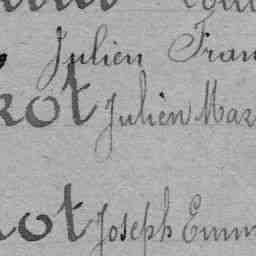 Julien Fran
rot Julien Mar
rot Joseph Emm